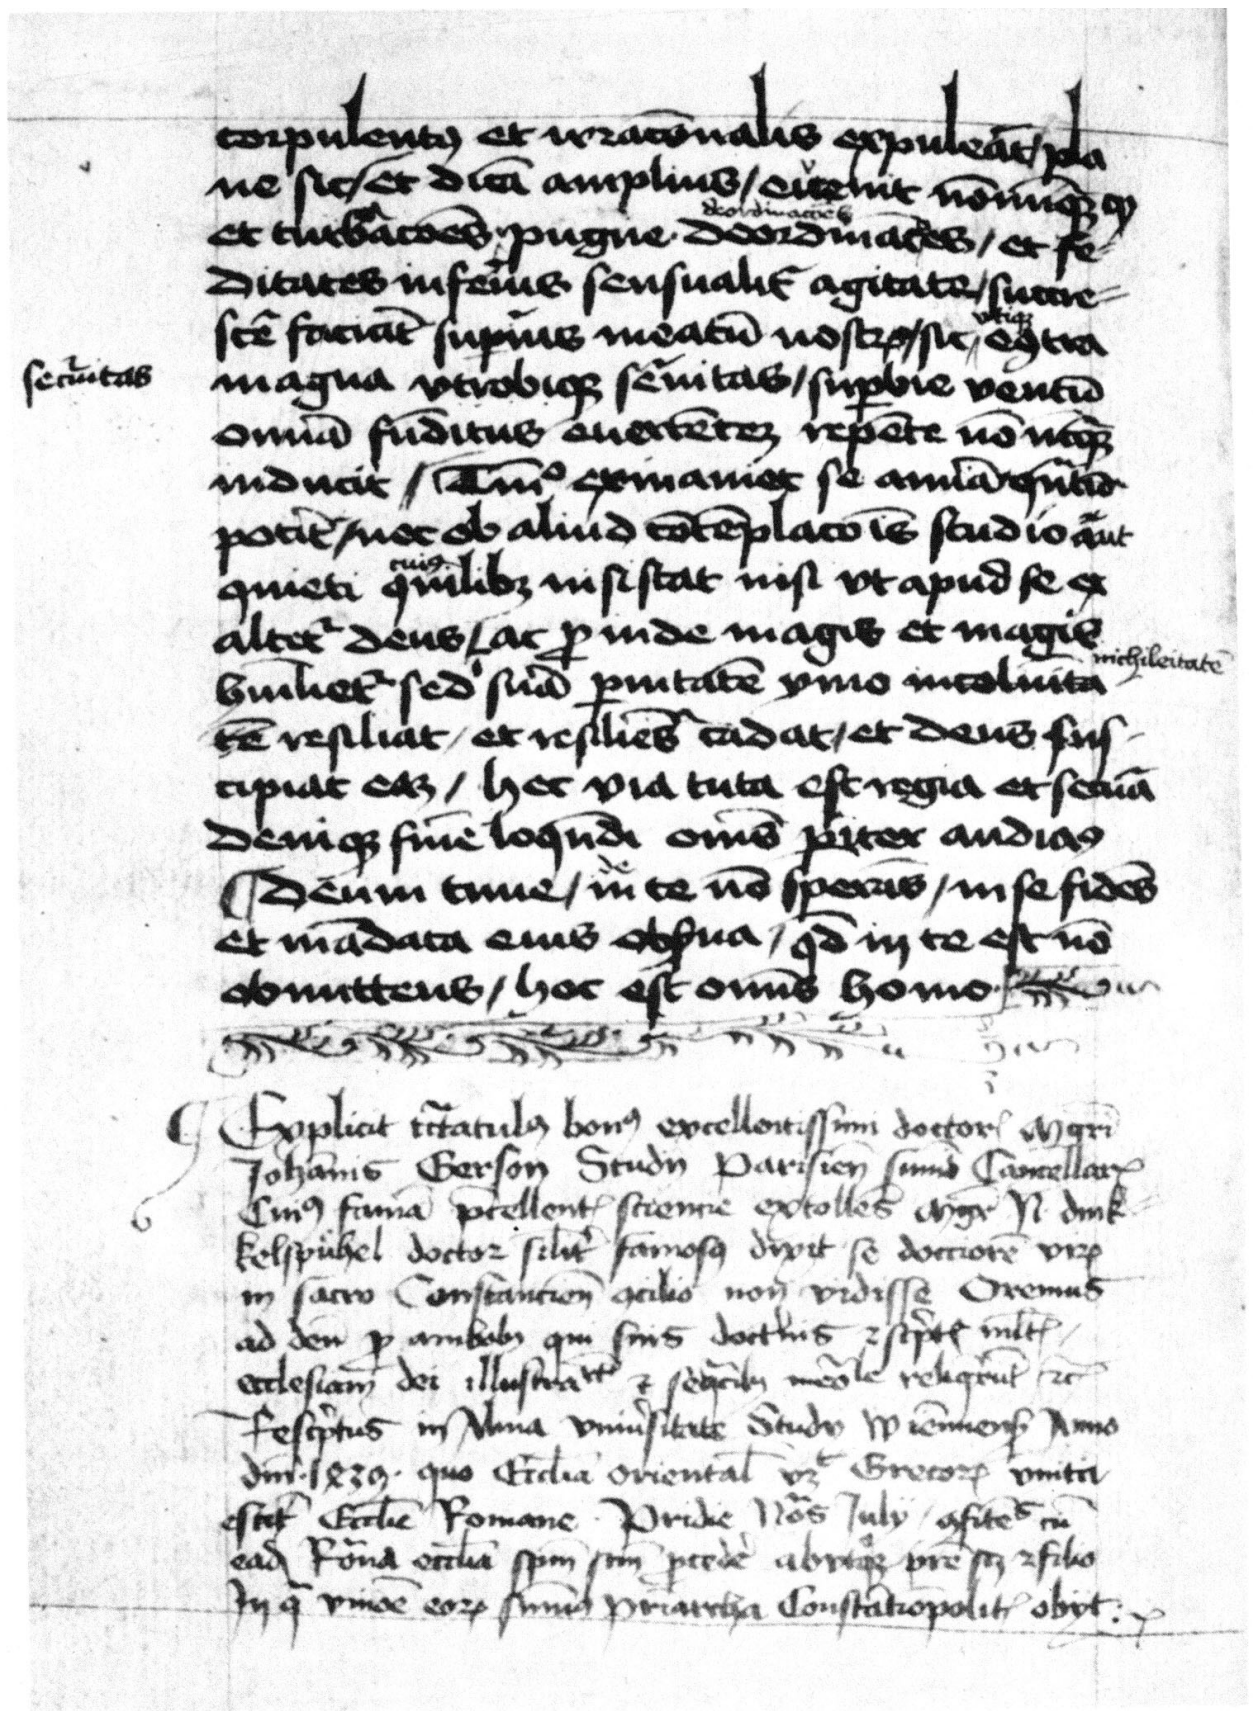 corpulentꝰ et irrac̄onalis expuleāt / pla
ne sic / et dicā amplius / euͤenit nōnūqꝫ ꝙ
deordinac̄oēs
et turbac̄oēs · pugne · deordinac̄oēs / et fe-
ditates inferius sensualit̄ agitate / succre-
vtiqꝫ
scē faciāt suꝑius meatū nostrꝝ / sic / eꝯtra
secūitas
magna vtrobiqꝫ secūitas / suꝑbie ventū
omnia fūditus euertēteꝫ repēte nō nūqꝫ
inducit / exinaniet se anīa
potit̄ / nec ob aliud cōtēplac̄oīs studio aut
cuiꝰ
quieti quilibꝫ insistat nisi vt apud se ex
altet̄ deus / ac ꝓinde magis et magis
nichileitatē
hūiliet̄ sed suā ymo
tē resiliat / et resiliēs cadat / et deus sus-
cipiat eū / hec via tuta est regia et secūa
deniqꝫ finē loquēdi om̄s ꝑiter audiaꝰ
de
¶ Deum time / in te nō speras / in se fidēs
et mādata eius obẜua / qd̄ in te est nō
obmittens / hoc est om̄is homo
¶ Explicit tractatulꝰ bonꝰ excellentissimi doctorꝭ Mgr̄i
Johānis Gerson Studij Parisien̄ summi Cancellarꝭ
Cuiꝰ famā p̄cellentꝭ sciencie extollēs Mgr̄ N. dink-
kelspuhel doctor silit̄ famosꝰ dixit se docciorē virꝝ
in sacro Constancien̄ ꝯcilio non vidisse Oremus
ad deū ꝓ ambobꝫ qui suis doctⁱnis ⁊ sc̄ptꝭ mltꝭ
ecclesiam dei illustrarūt ⁊ seqūtibꝫ reliq̄rūt ⁊c̄
Resc̄ptus in Alma vniūsitate Studij Wiennens̄ Anno
dn̄i · 1439 · quo Ecclīa oriental̄ vꝫ Grecorꝝ vnita
est Ecclīe Romane · Pridie Nōas Julij / ꝯfitēs cū
eadē Rōana ecclīa sp̄m sctm̄ ꝓcedē ab vtroqꝫ pr̄e scꝫ ⁊ filio
In qͣ vnioē eorꝝ summꝰ pr̄iarcha Constātinopolitꝭ obijt :